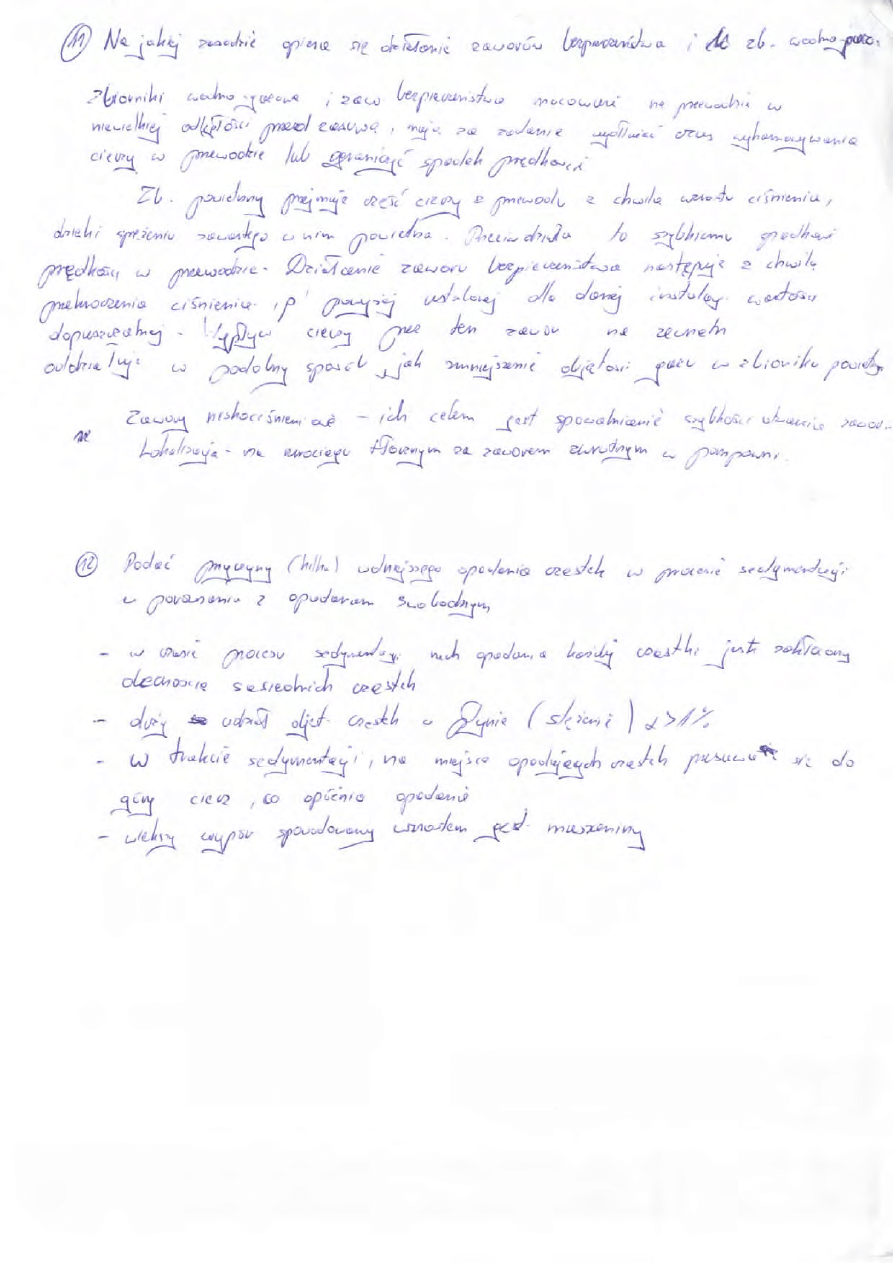 11 Na jakiej zasadzie opiera się działanie zaworów bezpieczeństwa i zb. wodno-pow.
Zbiorniki wodno-gazowe i zaw bezpieczeństwa mocować na przewodzie w
niewielkiej odległości przed zasuwą, mają za zadanie wydłużać czas wyhamowywania
cieczy w przewodzie lub ograniczyć spadek prędkości
Zb. powietrzny przejmuje część cieczy z przewodu z chwilą wzrostu ciśnienia,
dzięki sprężeniu zawartego w nim powietrza. Przeciwdziała to szybkiemu spadkowi
prędkości w przewodzie. Działanie zaworu bezpieczeństwa następuje z chwilą
przekroczenia ciśnienia "p" powyżej ustalonej dla danej instalacj. wartości
dopuszczalnej. Wypływ cieczy prze ten zawór na zewnątrz
oddziałuje w podobny sposób, jak zmniejszenie objętości gazu w zbiorniku powietrz
Zawory - ich celem jest spowalnianie szybkości
Lokalizacja - na rurociągu tłocznym za zaworem zwrotnym w pompowni.
12 Podać przyczyny (kilka) wolniejszego opadania cząstek w procesie sedymentacji
w porównaniu z opadaniem swobodnym
- w czasie procesu sedymentacji ruch opadania każdej cząstki jest zakłócony
obecnością sąsiednich cząstek
- duży udział objęt. cząstek w płynie (stężenie) α>1%
- w trakcie sedymentacji, na miejsce opadających cząstek przesuwa się do
góry ciecz, co opóźnia opadanie
- większy wypór spowodowany wzrostem gęst. mieszaniny